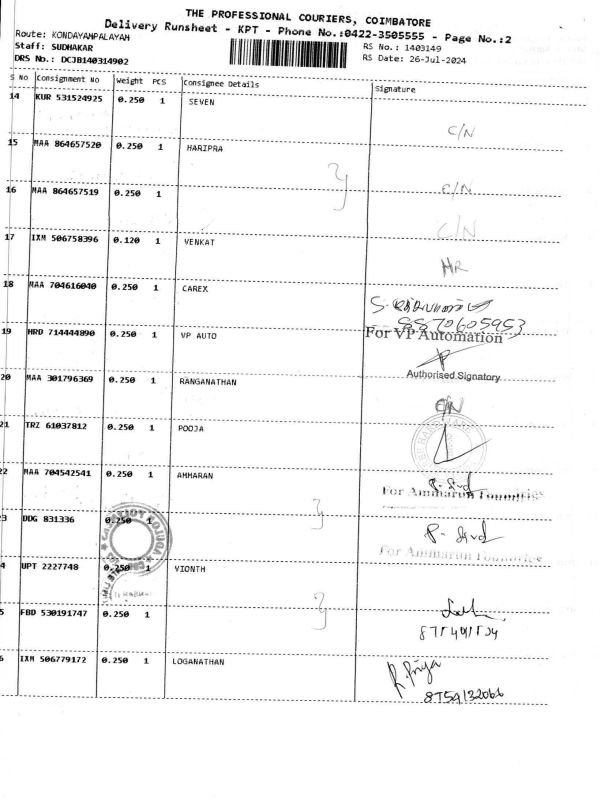 THE PROFESSIONAL COURIERS, COIMBATORE
Delivery Runsheet - KPT - Phone No.:0422-3505555 - Page No.:2
Route: KONDAYAMPALAYAM
Staff: SUDHAKAR
RS No.: 1403149
DRS No.: DCJB140314902
RS Date: 26-Jul-2024
S No Consignment No Weight PCS Consignee Details Signature
14 KUR 531524925 0.250 1 SEVEN
C/N
15 MAA 864657520 0.250 1 HARIPRA
C/N
16 MAA 864657519 0.250 1
C/N
17 IXM 506758396 0.120 1 VENKAT
HR
18 MAA 704616040 0.250 1 CAREX
8870605953
19 HRD 714444890 0.250 1 VP AUTO
For VP Automation
Authorised Signatory
20 MAA 301796369 0.250 1 RANGANATHAN
C/N
21 TRZ 61037812 0.250 1 POOJA
22 MAA 704542541 0.250 1 AMMARAN
For Ammarun Foundries
3 DDG 831336 0.250 1
For Ammarun Foundries
4 UPT 2227748 0.250 1 VIONTH
5 FBD 530191747 0.250 1
6 IXM 506779172 0.250 1 LOGANATHAN
R. Priya
8754132066